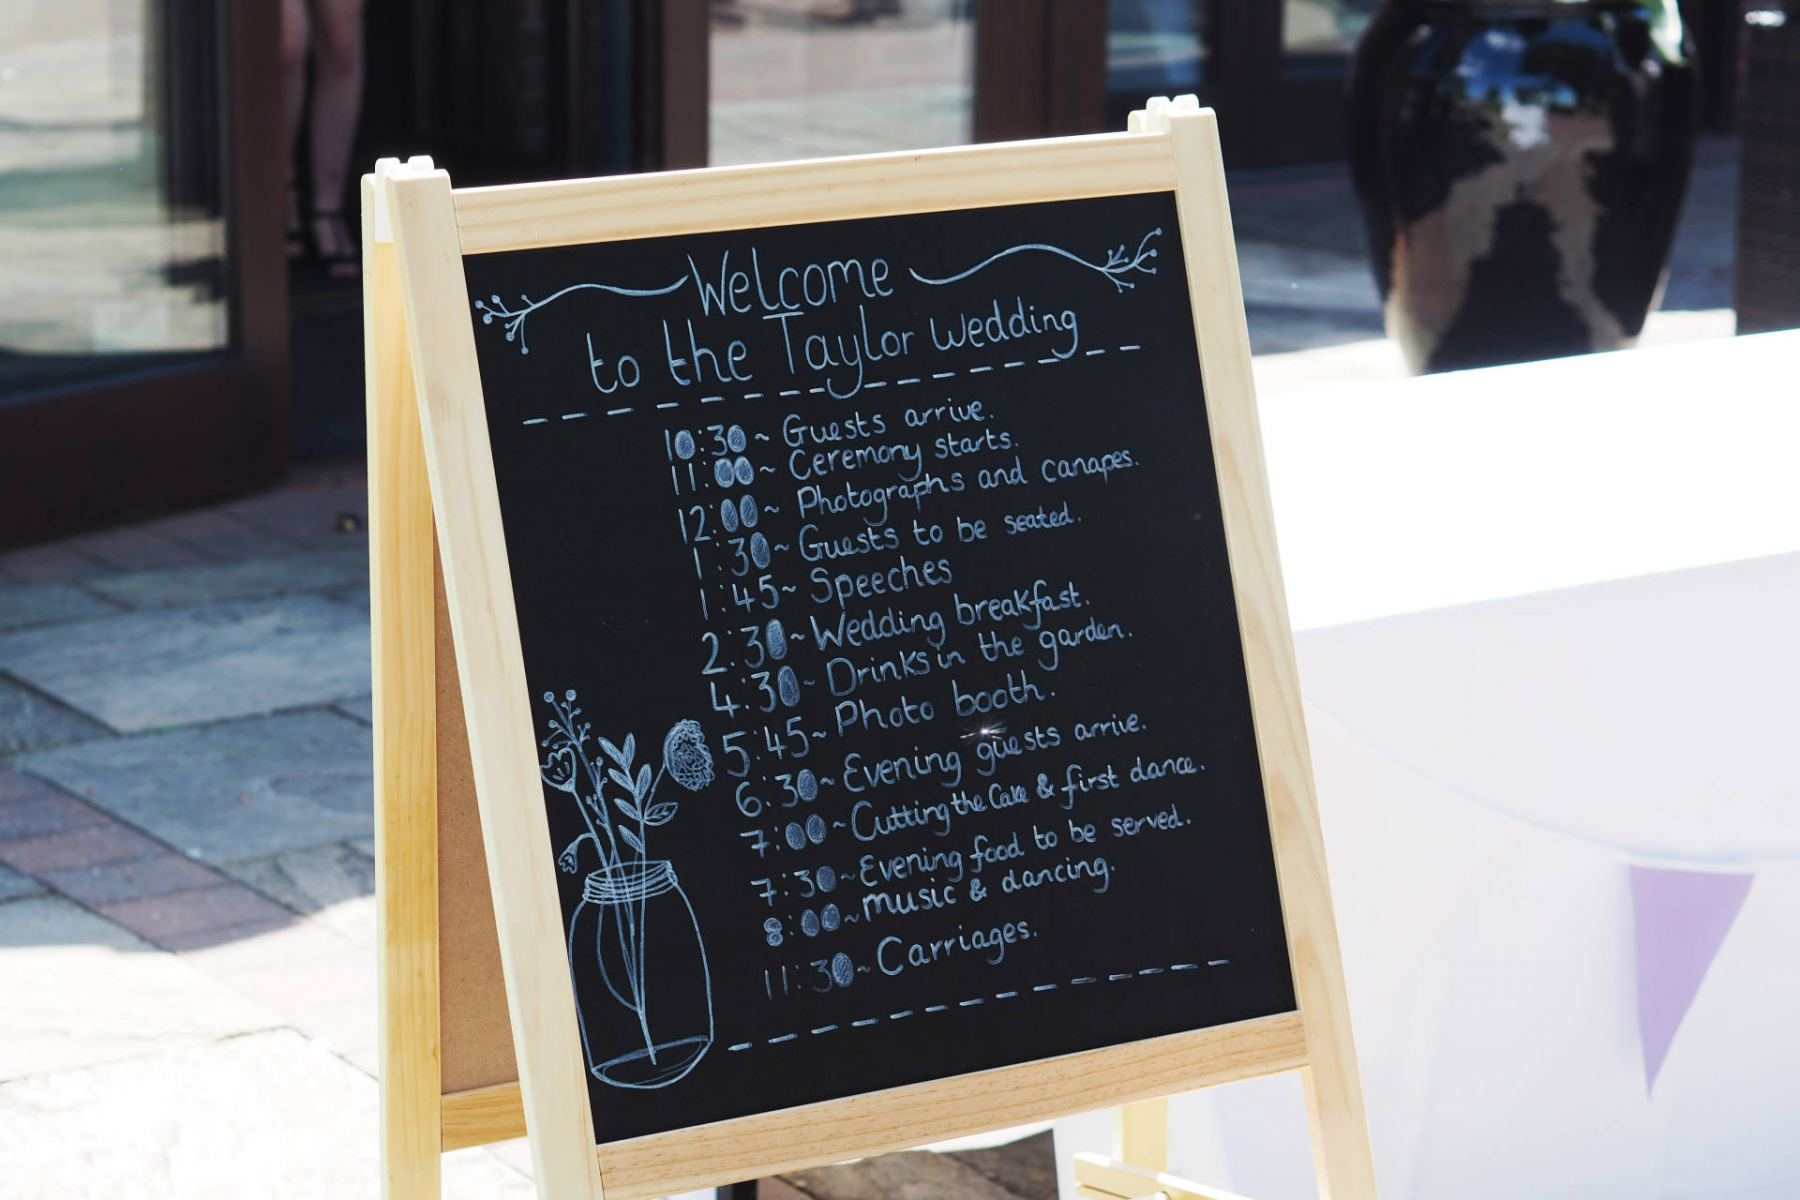 Welcome
to the Taylor wedding
10:30 ~ Guests arrive.
11:00 ~ Ceremony starts.
12:00 ~ Photographs and canapes.
1:30 ~ Guests to be seated.
1:45 ~ Speeches
2:30 ~ Wedding breakfast.
4:30 ~ Drinks in the garden.
5:45 ~ Photo booth.
6:30 ~ Evening guests arrive.
7:00 ~ Cutting the Cake & first dance.
7:30 ~ Evening food to be served.
8:00 ~ music & dancing.
11:30 ~ Carriages.